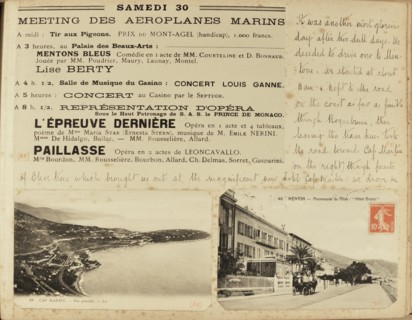 SAMEDI 30
MEETING DES AEROPLANES MARINS
A midi : Tir aux Pigeons. PRIX DU MONT-AGEL (handicap), 1.000 francs.
A 3 heures, au Palais des Beaux-Arts :
MENTONS BLEUS Comédie en 1 acte de MM. COURTELINE et D. BONNAUD.
Jouée par MM. Poudrier, Maury, Launay, Montel.
Lise BERTY
A 4 h. 1/2, Salle de Musique du Casino : CONCERT LOUIS GANNE.
A 5 heures : CONCERT au Casino par le SEPTUOR.
A 8 h. 1/2, REPRÉSENTATION D'OPÉRA
Sous le Haut Patronage de S. A. S. le PRINCE DE MONACO.
L'ÉPREUVE DERNIÈRE Opéra en 1 acte et 4 tableaux,
poème de Mme MARIA STAR (ERNESTA STERN), musique de M. EMILE NERINI.
de Hidalgo, — MM. Rousselière, Allard.
PAILLASSE Opéra en 2 actes de LEONCAVALLO.
Mlle Bourdon, MM. Rousselière, Bourbon, Allard, Ch. Delmas, Sorret, Gasparini.
It was another most glorious
day after this dull days. We
decided to drive over to Men-
tone. We started at about
& kept to the road
on the coast as far as possible
through Roquebrune, then
leaving the main line took
the road round Cap Martin
on the right, though
of Olive trees which brought us out at the magnificent
CAP MARTIN
MENTON — Promenade du Midi